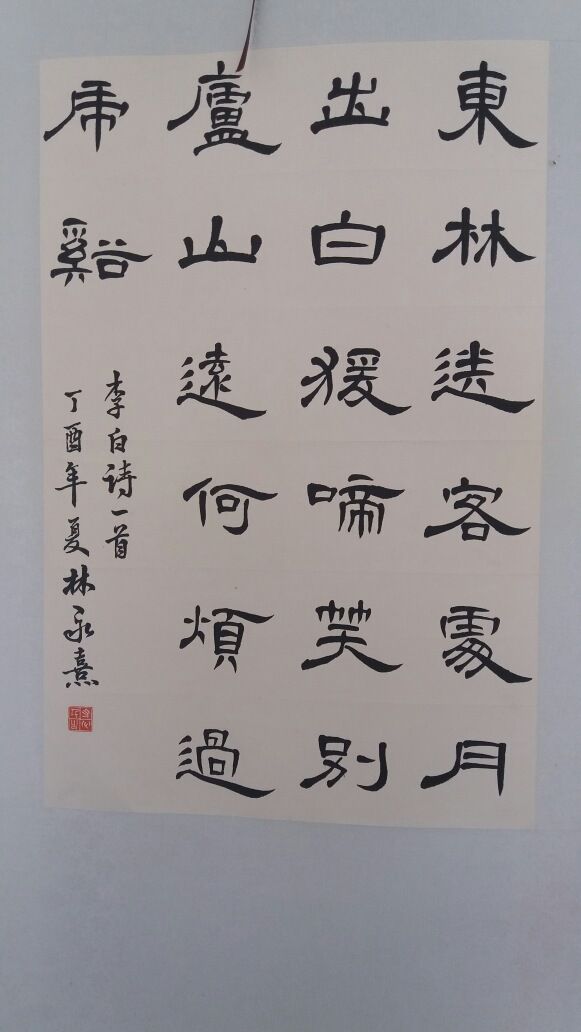 東林送客處月
出白猨啼笑別
廬山遠何煩過
虎谿
李白詩一首
丁酉年夏林永熹